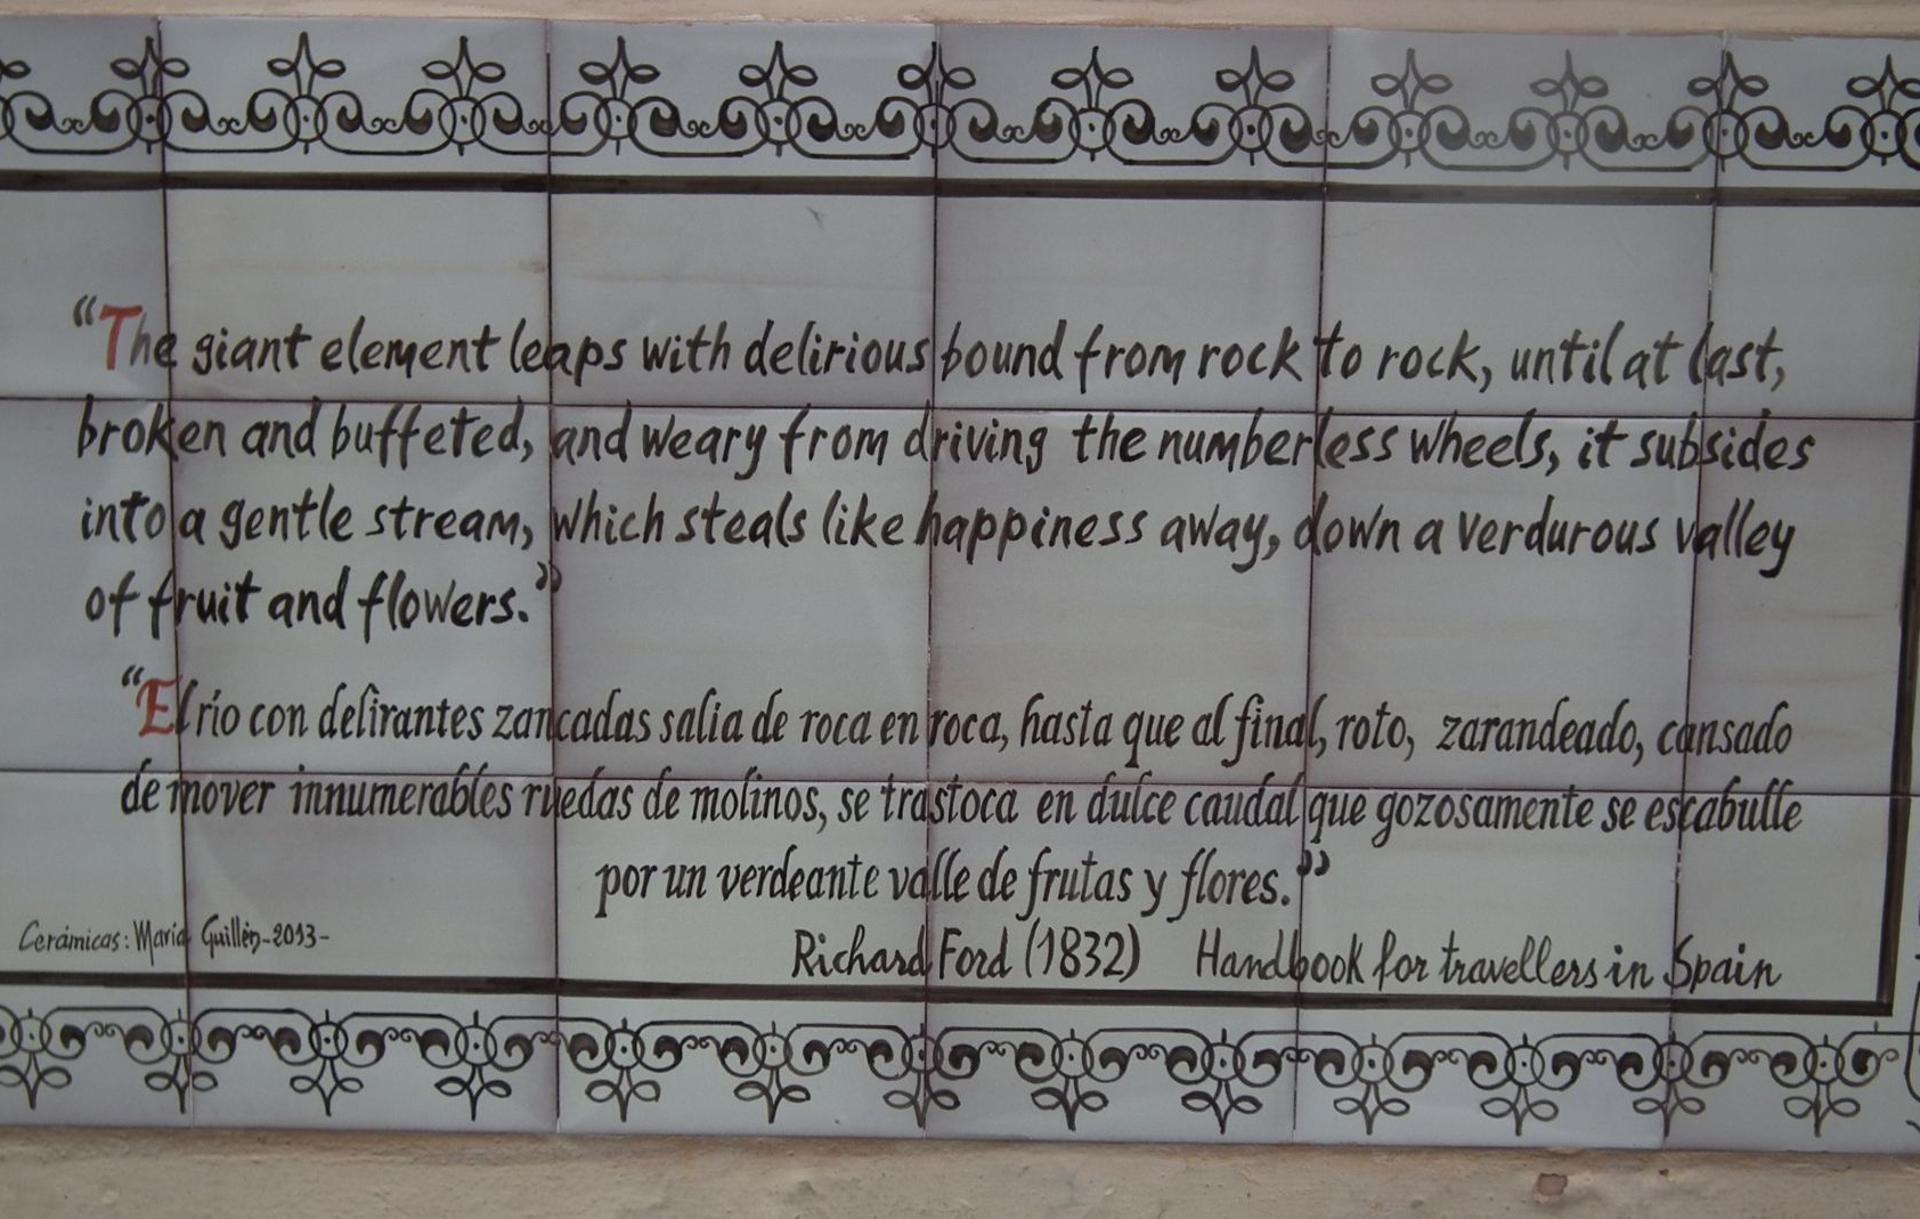 “The giant element leaps with delirious bound from rock to rock, until at last,
broken and buffeted, and weary from driving the numberless wheels, it subsides
into a gentle stream, which steals like happiness away, down a verdurous valley
of fruit and flowers.”
“El río con delirantes zancadas salia de roca en roca, hasta que al final, roto, zarandeado, cansado
de mover innumerables ruedas de molinos, se trastoca en dulce caudal que gozosamente se escabulle
por un verdeante valle de frutas y flores.”
Cerámicas: María Guillén-2013-
Richard Ford (1832) Handbook for travellers in Spain